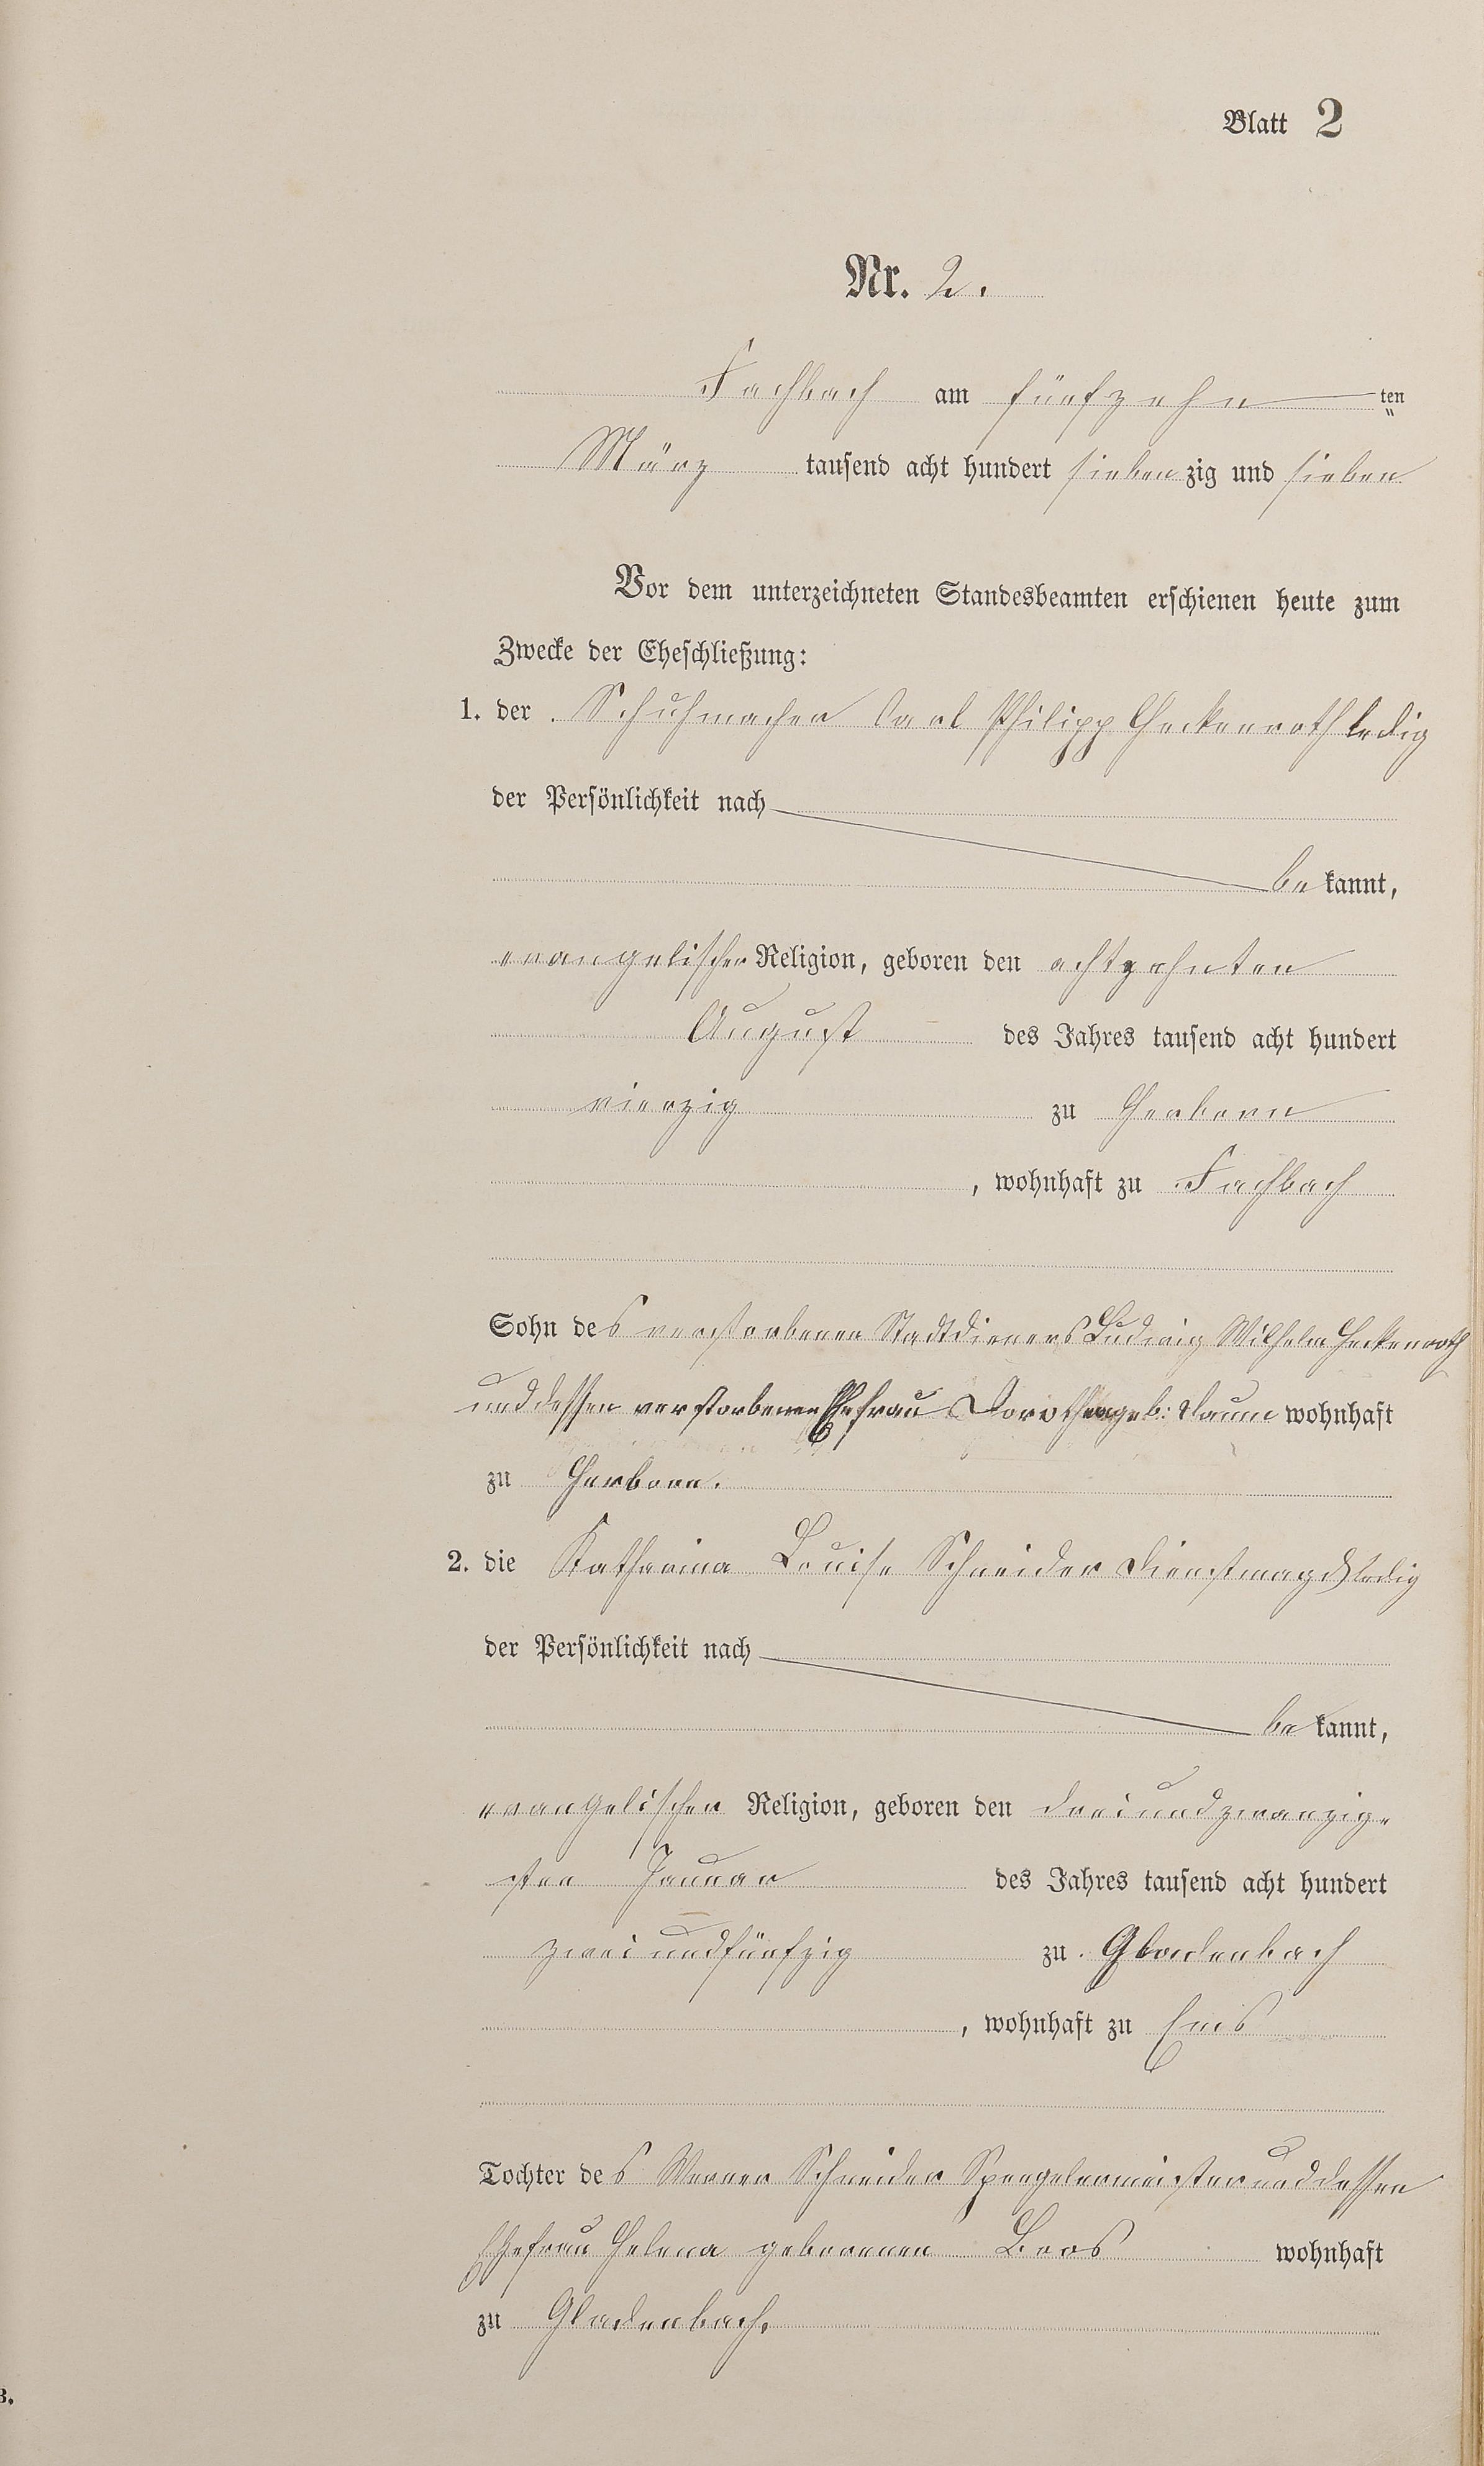 Blatt 2
Nr. 2.
Fachbach am fünfzehn ten
März tausend acht hundert siebenzig und sieben
Vor dem unterzeichneten Standesbeamten erschienen heute zum
Zwecke der Eheschließung:
1. der Schuhmacher Carl Philipp Heckenroth ledig
der Persönlichkeit nach
be kannt,
evangelischer Religion, geboren den achtzehnten
August des Jahres tausend acht hundert
vierzig zu Herborn
, wohnhaft zu Fachbach
Sohn des verstorbenen Stadtdieners Ludwig Wilhelm Heckenroth
und dessen verstorbenen Ehefrau Dorothea geb: Daum wohnhaft
zu Herborn.
2. die Katharina Louise Schneider Dienstmagd ledig
der Persönlichkeit nach
be kannt,
evangelischer Religion, geboren den dreiundzwanzig-
sten Januar des Jahres tausend acht hundert
zwei und fünfzig zu Gladenbach
, wohnhaft zu Ems
Tochter des Werner Schneider Spenglermeister und dessen
Ehefrau Helena geborenen Boos wohnhaft
zu Gladenbach.